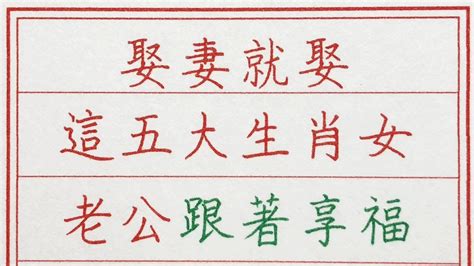 娶妻就娶
這五大生肖女
老公跟著享福